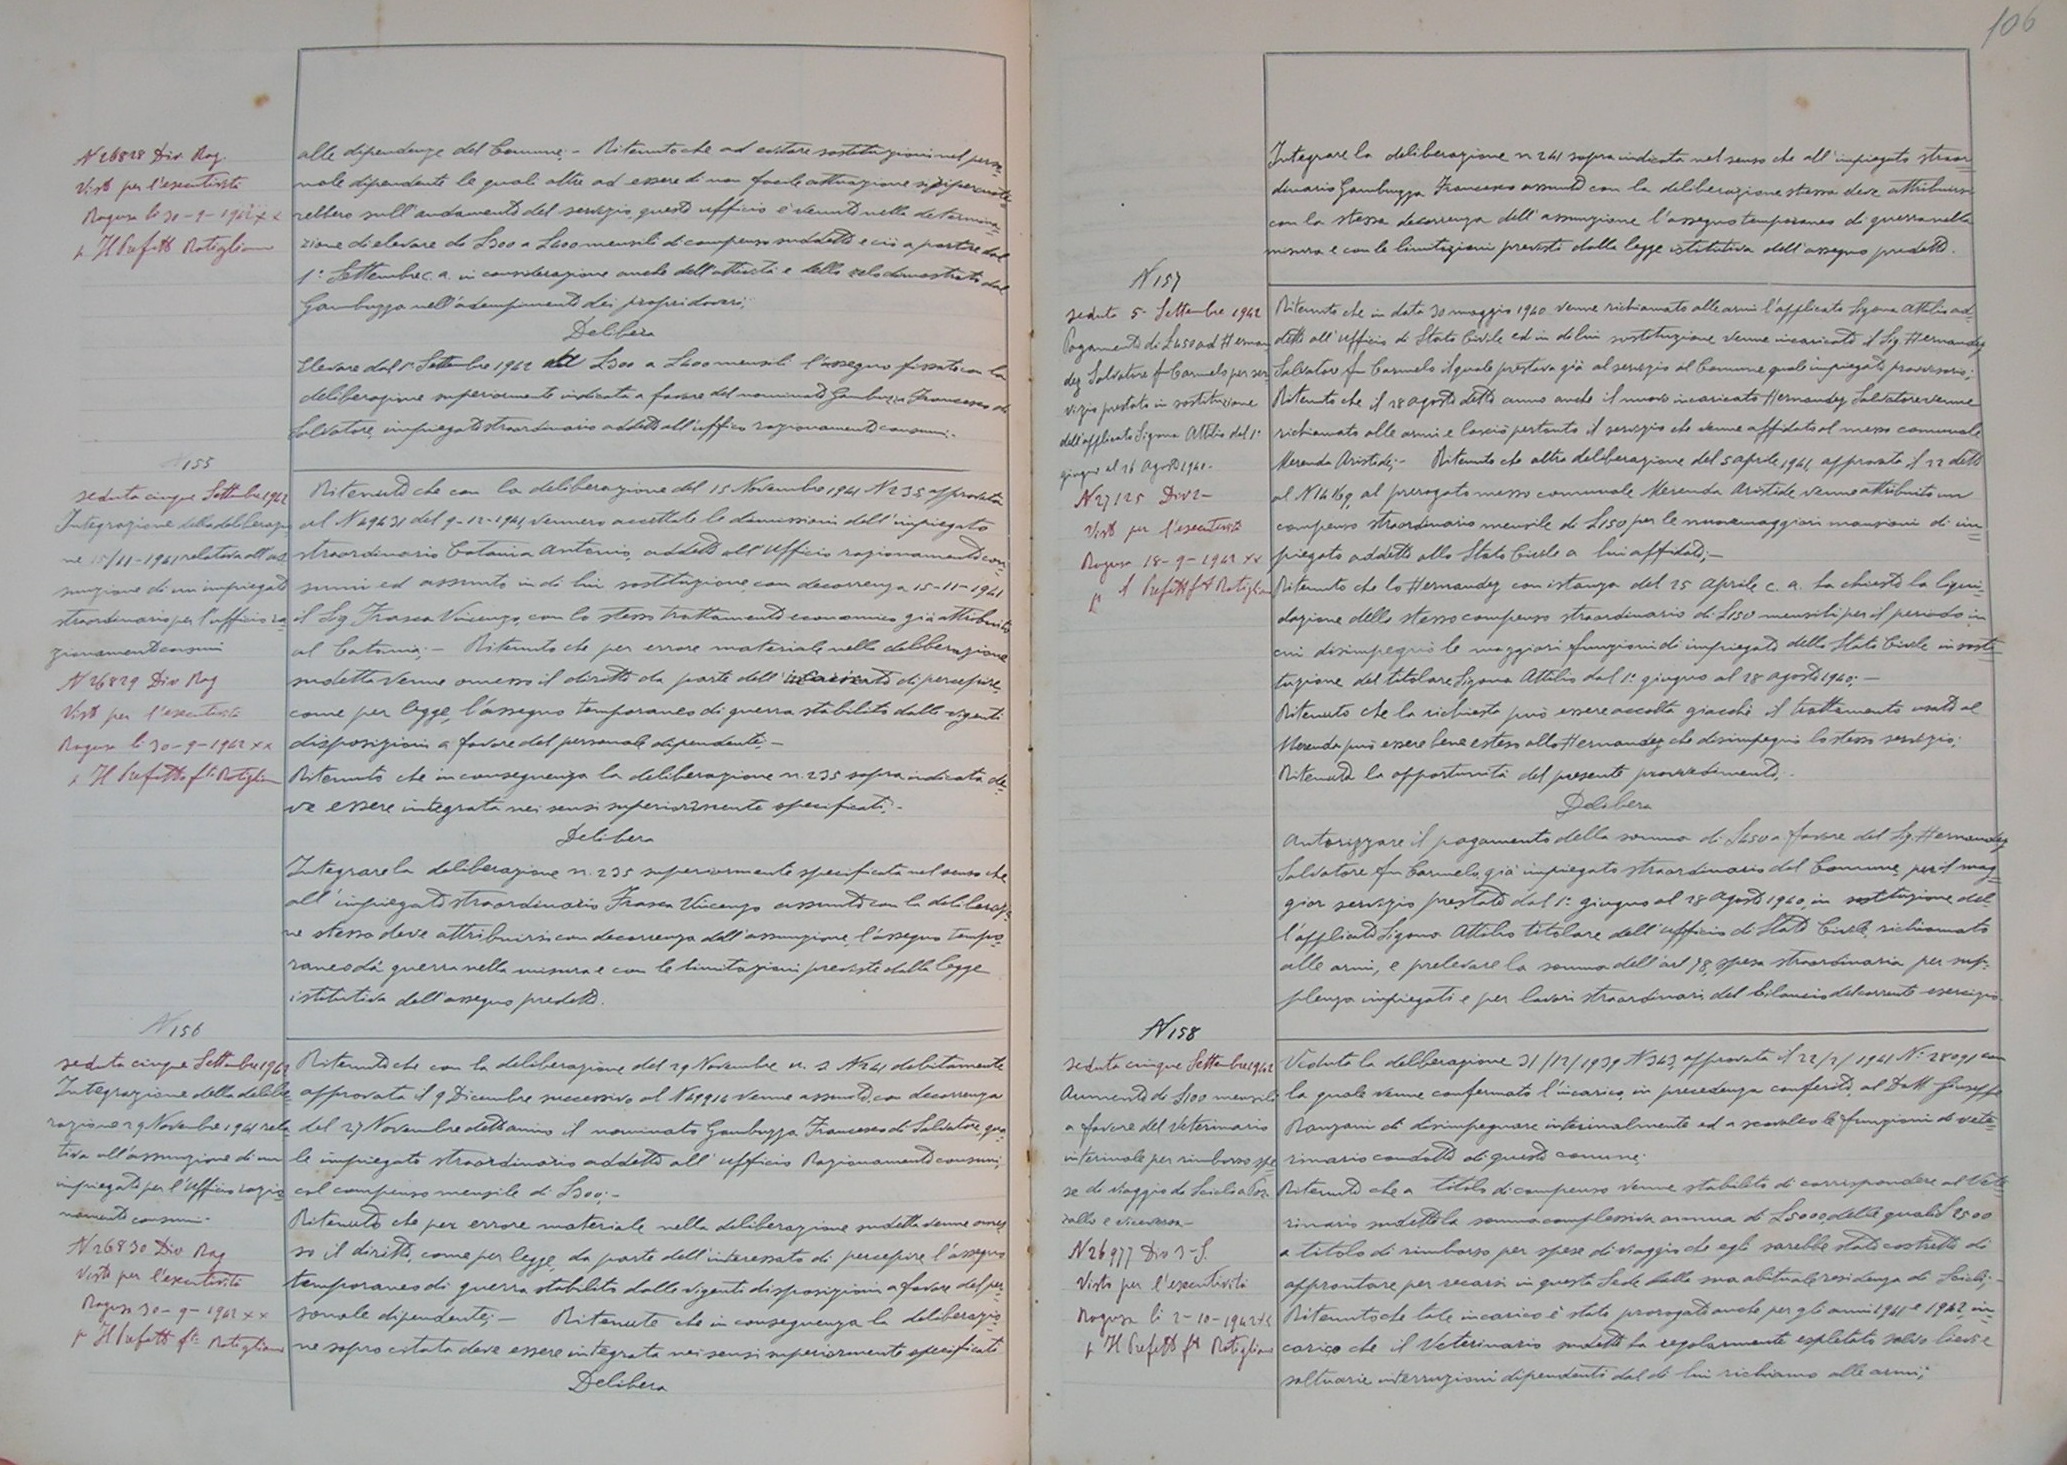 106
N 26828 Div. Rag.
Visto per l'esecutività
Ragusa li 30-9-1942 XX
p. Il Prefetto Rotigliano
alle dipendenze del Comune; - Ritenuto che ad evitare sostituzioni nel perso=
nale dipendente le quali oltre ad essere di non facile attuazione si ripercuote=
rebbero sull'andamento del servizio, questo ufficio è venuto nella determina=
zione di elevare da £300 a £400 mensili di compenso suddetto e ciò a partire dal
1° Settembre c. a. in considerazione anche dell'attività e dello zelo dimostrato dal
Gambuzza nell'adempimento dei propri doveri;
Delibera
Elevare dal 1° Settembre 1942 da £300 a £400 mensili l'assegno fissato con la
deliberazione superiormente indicata a favore del nominato Gambuzza Francesco di
Salvatore, impiegato straordinario addetto all'ufficio razionamento consumi.-
N 155
seduta cinque Settembre 1942
Integrazione della deliberazio
ne 15/11-1941 relativa all'as
sunzione di un impiegato
straordinario per l'ufficio ra
zionamento consumi
N 26829 Div Rag
Visto per l'esecutività
Ragusa li 30-9-1942 XX
p. Il Prefetto fto Rotigliano
Ritenuto che con la deliberazione del 15 Novembre 1941 N 235 approvata
al N 49431 del 9-12-1941, vennero accettate le dimissioni dell'impiegato
straordinario Catania Antonio, addetto all'Ufficio razionamento con=
sumi ed assunto in di lui sostituzione, con decorrenza 15-11-1941
il Sig. Frasca Vincenzo, con lo stesso trattamento economico già attribuito
al Catania; - Ritenuto che per errore materiale nella deliberazione
sudetta venne omesso il diritto da parte dell'incaricato di percepire,
come per legge, l'assegno temporaneo di guerra stabilito dalle vigenti
disposizioni a favore del personale dipendente;-
Ritenuto che in conseguenza la deliberazione n. 235 sopra indicata de=
ve essere integrata nei sensi superiormente specificati;-
Delibera
Integrare la deliberazione n. 235 superiormente specificata nel senso che
all'impiegato straordinario Frasca Vincenzo assunto con la deliberazio
ne stessa deve attribuirsi con decorrenza dell'assunzione, l'assegno tempo=
raneo di guerra nella misura e con le limitazioni previste dalla legge
istitutiva dell'assegno predetto.
N 156
seduta cinque Settembre 1942
Integrazione della delibe=
razione 29 Novembre 1941 rela
tiva all'assunzione di un
impiegato per l'Ufficio razio
namento consumi.-
N 26830 Div Rag
Visto per l'esecutività
Ragusa 30-9-1942 XX
p. Il Prefetto fto Rotigliano
Ritenuto che con la deliberazione del 29 Novembre u. s. N 241 debitamente
approvata il 9 Dicembre successivo al N 49914 venne assunto, con decorrenza
del 27 Novembre detto anno il nominato Gambuzza Francesco di Salvatore, qua=
le impiegato straordinario addetto all'ufficio Razionamento consumi,
col compenso mensile di £300;-
Ritenuto che per errore materiale nella deliberazione sudetta venne omes
so il diritto, come per legge, da parte dell'interessato di percepire l'assegno
temporaneo di guerra stabilito dalle vigenti disposizioni a favore del per=
sonale dipendente; - Ritenuto che in conseguenza la deliberazio=
ne sopra citata deve essere integrata nei sensi superiormente specificati
Delibera
Integrare la deliberazione n 241 sopra indicata nel senso che all'impiegato straor
dinario Gambuzza Francesco assunto con la deliberazione stessa deve attribuirsi
con la stessa decorrenza dell'assunzione l'assegno temporaneo di guerra nella
misura e con le limitazioni previste dalla legge istitutiva dell'assegno predetto.
N 157
seduta 5- Settembre 1942
Pagamento di £450 ad Hernan
dez Salvatore fu Carmelo per ser=
vizio prestato in sostituzione
dell'applicato Sigona Attilio dal 1°
giugno al 28 Agosto 1940.
N 27125 Div 2-
Visto per l'esecutività
Ragusa 18-9-1942 XX
p. Il Prefetto fto Rotigliano
Ritenuto che in data 30 maggio 1940 venne richiamato alle armi l'applicato Sigona Attilio ad=
detto all'ufficio di Stato Civile ed in di lui sostituzione venne incaricato il Sig. Hernandez
Salvatore fu Carmelo il quale prestava già al servizio al Comune quale impiegato provvisorio;
Ritenuto che il 28 agosto detto anno anche il nuovo incaricato Hernandez Salvatore venne
richiamato alle armi e lasciò pertanto il servizio che venne affidato al messo comunale
Merenda Aristide;- Ritenuto che altra deliberazione del 5 aprile 1941, approvata il 22 detto
al N 14169, al prerogato messo comunale Merenda Aristide venne attribuito un
compenso straordinario mensile di £150 per le nuove maggiori mansioni di im=
piegato addetto allo Stato Civile a lui affidato;-
Ritenuto che lo Hernandez con istanza del 25 Aprile c. a. ha chiesto la liqui=
dazione dello stesso compenso straordinario di £150 mensili per il periodo in
cui disimpegnò le maggiori funzioni di impiegato dello Stato Civile in sosti=
tuzione del titolare Sigona Attilio dal 1° giugno al 28 agosto 1940;-
Ritenuto che la richiesta può essere accolta giacchè il trattamento usato al
Merenda può essere bene esteso allo Hernandez che disimpegnò lo stesso servizio;
Ritenuta la opportunità del presente provvedimento;.
Delibera
Autorizzare il pagamento della somma di £450 a favore del Sig. Hernandez
Salvatore fu Carmelo, già impiegato straordinario del Comune, per il mag=
gior servizio prestato dal 1° giugno al 28 Agosto 1940, in sostituzione del=
l'applicato Sigona Attilio titolare dell'ufficio di Stato Civile, richiamato
alle armi, e prelevare la somma dell'art 78, spesa straordinaria per sup=
plenza impiegati e per lavori straordinari, del bilancio del corrente esercizio.
N 158
seduta cinque Settembre 1942
Aumento di £100 mensili
a favore del Veterinario
interinale per rimborso spe
se di viaggio da Scicli a Poz
zallo e viceversa-
N 26977 Div 3-S.
Visto per l'esecutività
Ragusa li 2-10-1942 XX
p. Il Prefetto fto Rotigliano
Veduta la deliberazione 31/12/1939 N 363, approvata il 22/2/1941 N° 28091 con
la quale venne confermato l'incarico, in precedenza conferito, al Dott. Giuseppe
Ranzani di disimpegnare interinalmente ed a scavalco le funzioni di vete=
rinario condotto di questo comune;
Ritenuto che a titolo di compenso venne stabilito di corrispondere al Vete=
rinario sudetto la somma complessiva annua di £5000 delle quali £ 2500
a titolo di rimborso per spese di viaggio che egli sarebbe stato costretto di
approntare per recarsi in questa Sede dalla sua abituale residenza di Scicli;-
Ritenuto che tale incarico è stato prorogato anche per gli anni 1941 e 1942, in=
carico che il Veterinario sudetto ha regolarmente espletato salvo lievi e
saltuarie interruzioni dipendenti dal di lui richiamo alle armi;